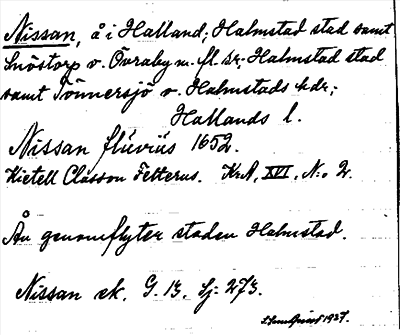 Nissan, å i Halland; Halmstad stad samt
Snöstorp o. Övraby m. fl. s:r; Halmstad stad
samt Tönnersjö o. Halmstads hdr;
Hallands l.
Nissan flúviús 1652.
Kietell Clásson Felterus. KrA, XVI, N:o 2.
Ån genomflyter staden Halmstad.
Nissan ek. G. 13. Sj: 273.
1927.